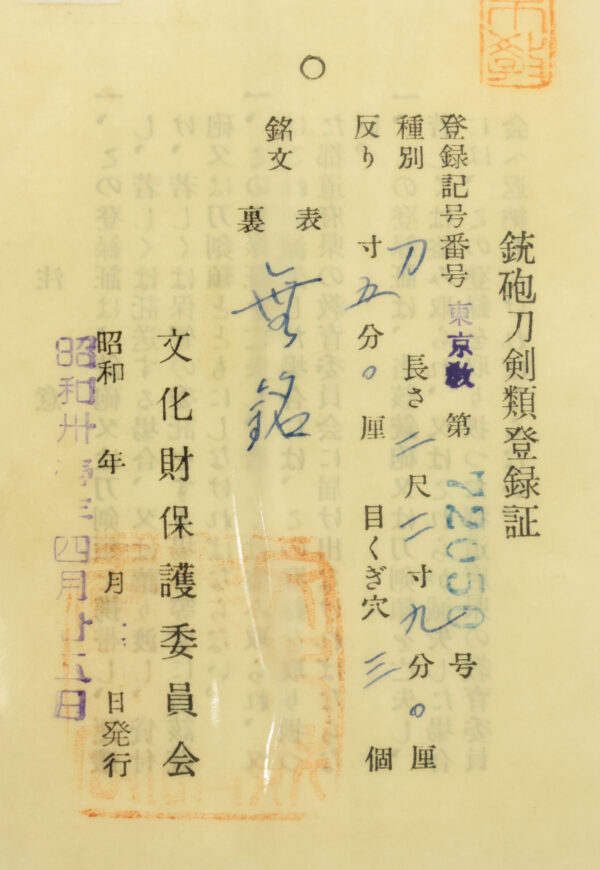 銃砲刀剣類登録証
登録記号番号 東京教 第 72056 号
種別 刀 長さ 二尺二寸九分0厘
反り 寸五分0厘 目くぎ穴 三 個
銘文 表
裏
無銘
文化財保護委員会
昭和 年 月 日発行
昭和卅 年四月廿五日